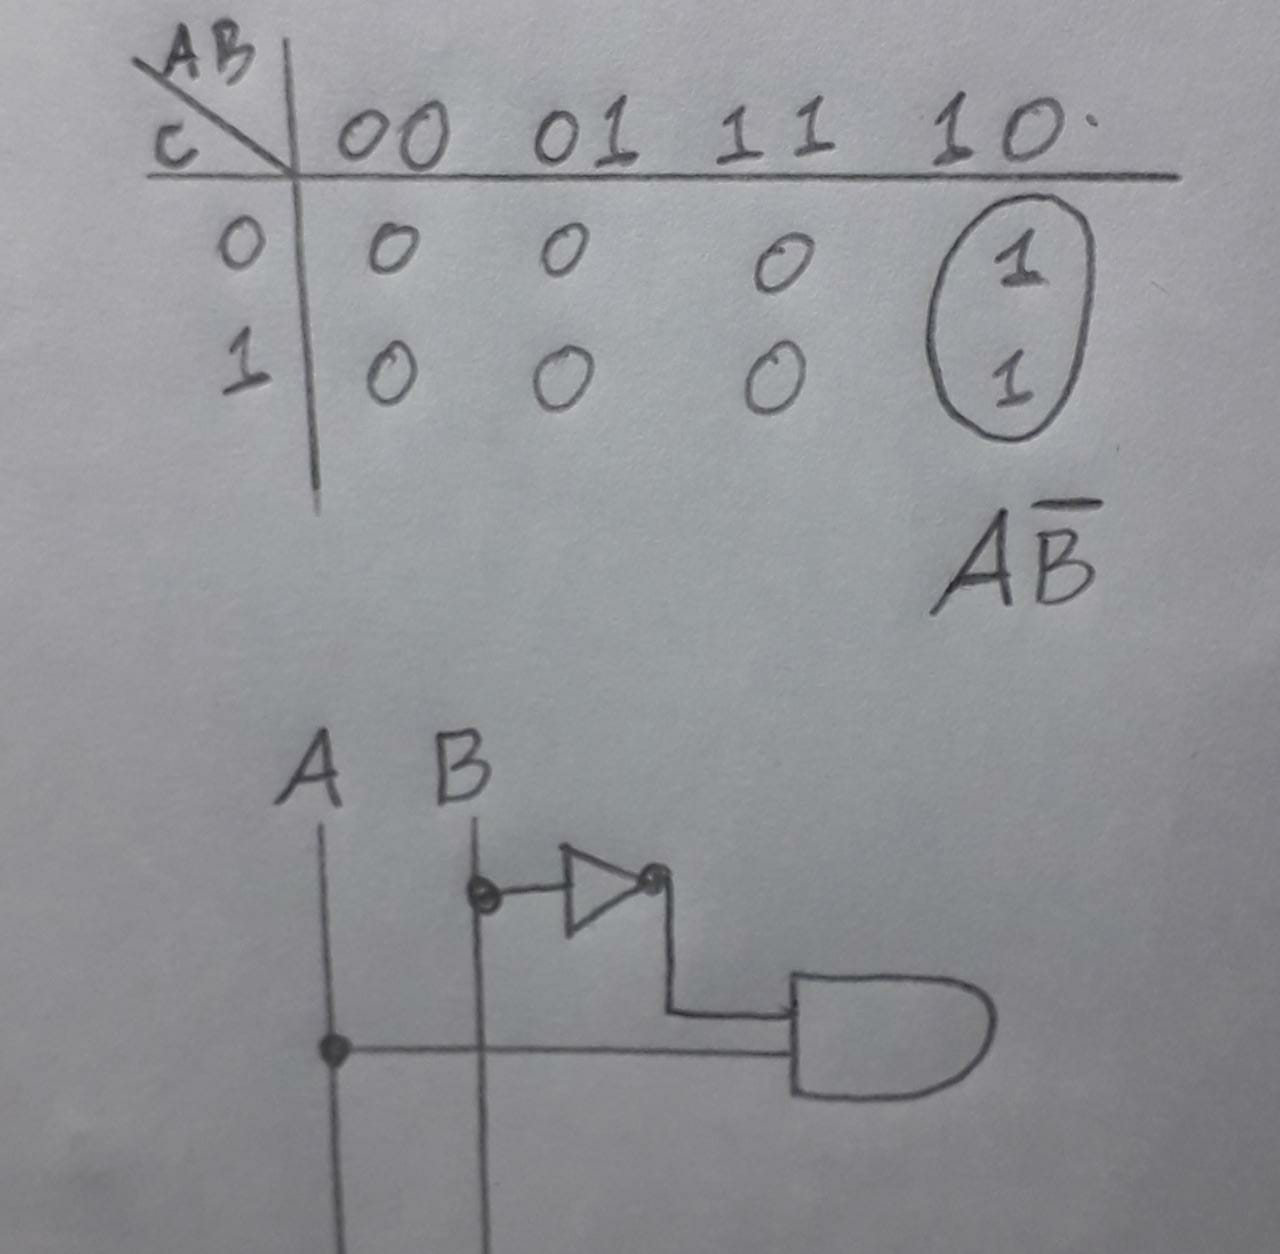 AB
C 00 01 11 10
0 0 0 0 1
1 0 0 0 1
AB̅
A B